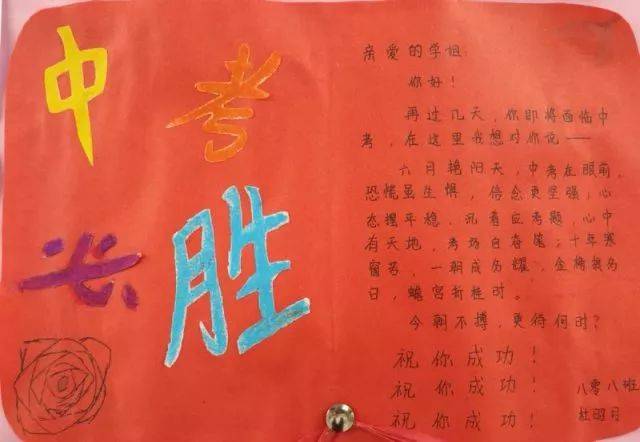 中考
必胜
亲爱的学姐:
你好!
再过几天,你即将面临中
考,在这里我想对你说——
六月艳阳天,中考在眼前,
恐慌虽生惧,信念更坚强,心
态摆平稳,沉着应考题,心中
有天地,考场自答笔;十年寒
窗苦,一朝成伤耀,金榜提名
日,蟾宫折桂时。
今朝不搏,更待何时?
祝你成功!
祝你成功!
祝你成功!
八零八班
杜明月